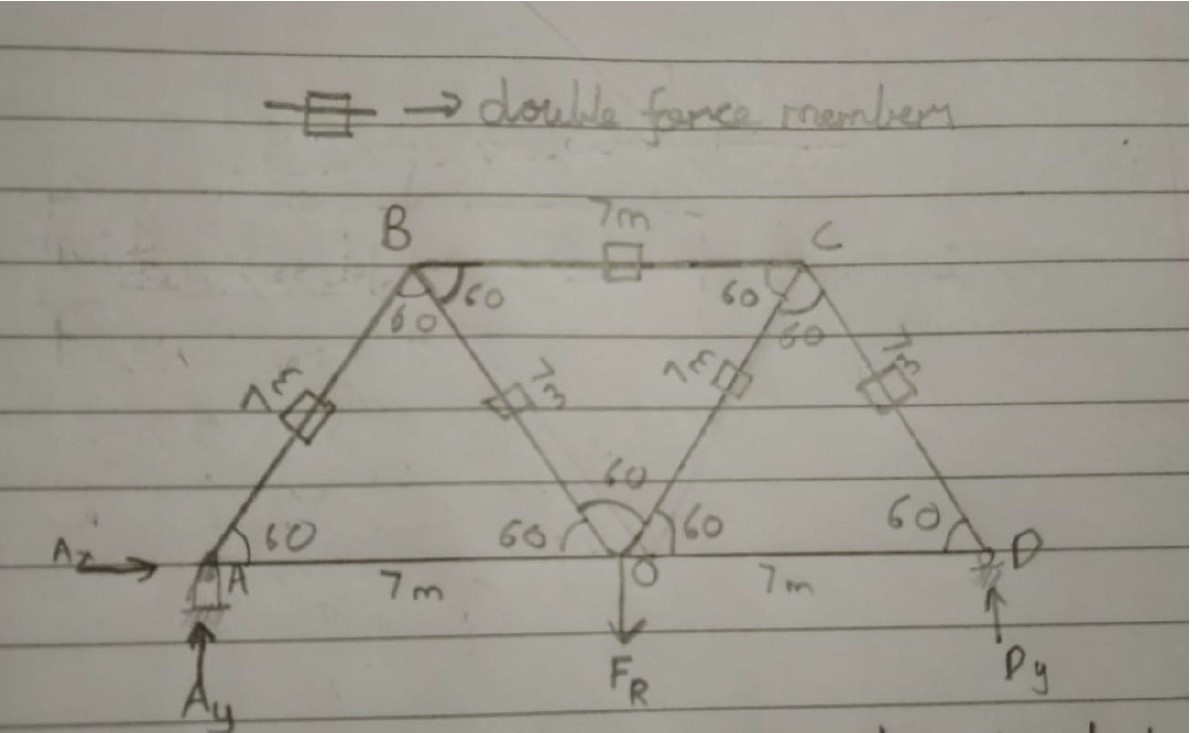 → double force members
7m
B
C
60
60
60
60
7m
7m
7m
7m
60
Ax
A
60
60
60
60
D
7m
O
7m
Ay
FR
Dy